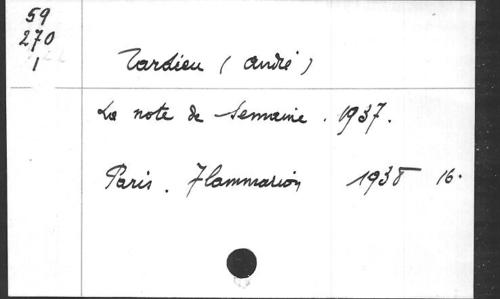 59
270
1
Tardieu (André)
La note de Semaine. 1937.
Paris. Flammarion 1938 16.